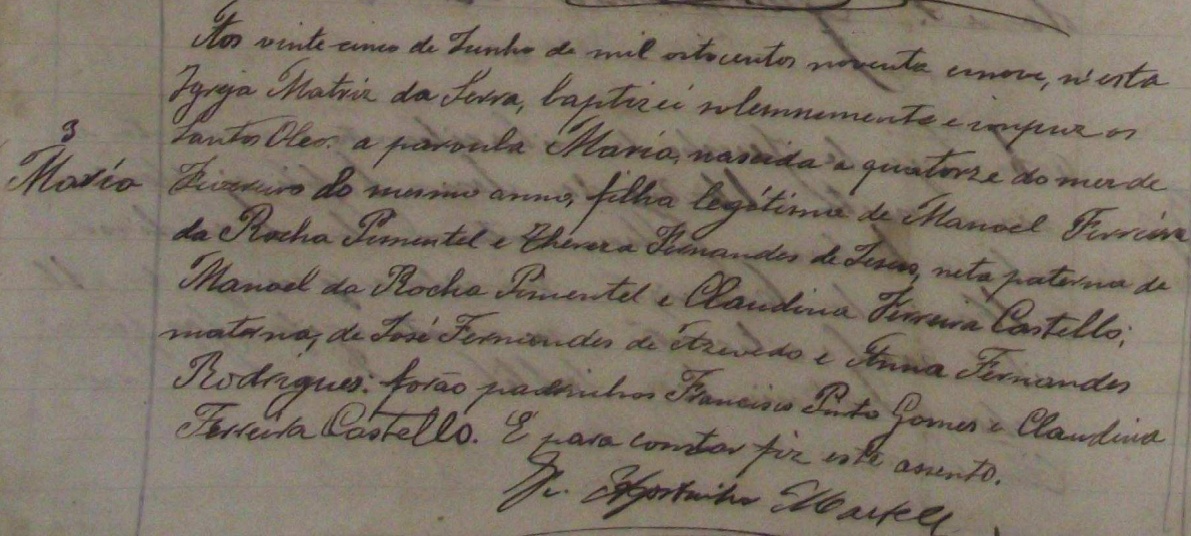 Aos vinte cinco de Junho de mil oitocentos noventa enove, n'esta
Igreja Matriz da Serra, baptizei solemnemente e impuz os
3
Santos Oleos a parvula Maria, nascida a quatorze do mez de
Maria
Fevereiro do mesmo anno, filha legítima de Manoel Ferreira
da Rocha Pimentel e Thereza Fernandes de Jesus, neta paterna de
Manoel da Rocha Pimentel e Claudina Ferreira Castello;
materna, de José Fernandes de Azevedo e Anna Fernandes
Rodrigues: forão padrinhos Francisco Pinto Gomes e Claudina
Ferreira Castello. E para constar fiz este assento.